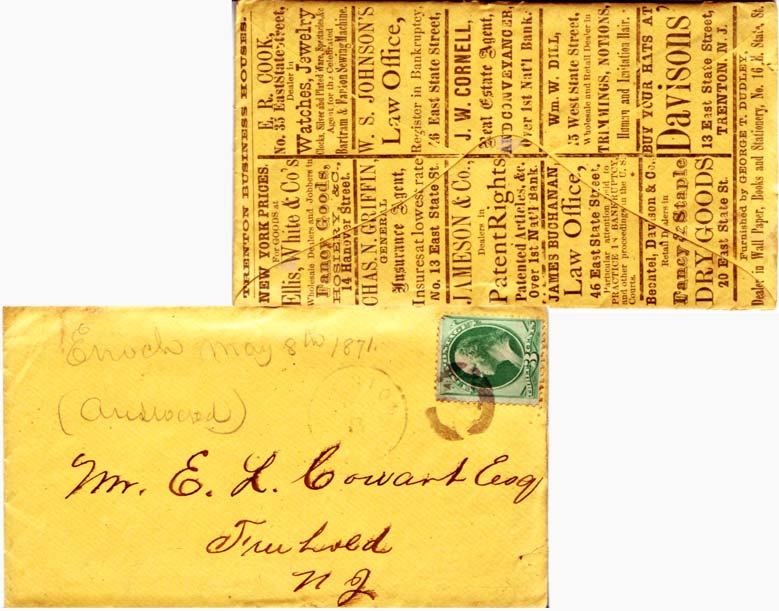 TRENTON BUSINESS HOUSES.
NEW YORK PRICES.
For GOODS at
Ellis, White & Co's
Wholesale Dealers and Jobbers in
Fancy Goods,
HOSIERY, &C.,
14 Hanover Street.
CHAS. N. GRIFFIN,
GENERAL
Insurance Agent,
Insures at lowest rate
No. 13 East State St.
JAMESON & Co.,
Dealers in
Patent Rights
Patented Articles, &c.
Over 1st Nat'l Bank.
JAMES BUCHANAN,
Law Office,
46 East State Street,
Particular attention paid to
PRACTICE IN BANKRUPTCY,
and other proceedings in the U. S.
Courts.
Bechtel, Davison & Co.,
Retail Dealers in
Fancy & Staple
DRY GOODS
20 East State St.
E. R. COOK,
No. 35 East State Street,
Dealer in
Watches, Jewelry
Clocks, Silver and Plated Ware, Spectacles, &c
Agent for the Celebrated
Bartram & Fanton Sewing Machine.
W. S. JOHNSON'S
Law Office,
Register in Bankruptcy,
26 East State Street,
J. W. CORNELL,
Real Estate Agent,
AND CONVEYANCER,
Over 1st Nat'l Bank.
Wm. W. DILL,
25 West State Street,
Wholesale and Retail Dealer in
TRIMMINGS, NOTIONS,
Human and Imitation Hair.
BUY YOUR HATS AT
Davisons'
13 East State Street,
TRENTON, N. J.
Furnished by GEORGE T. DUDLEY,
Dealer in Wall Paper, Books and Stationery, No. 16 E. State St.
Enoch May 8th 1871.
(Answered)
Mr. E. L. Cowart Esq
Freehold
N J